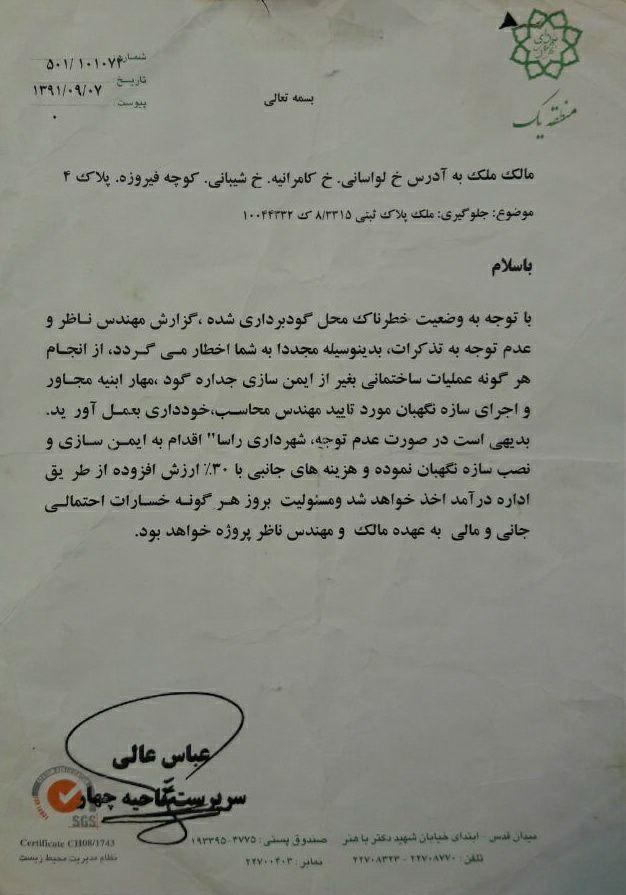 شماره: ۵۰۱/۱۰۱۰۷۲
تاریخ: ۱۳۹۱/۰۹/۰۷
پیوست: ۰
منطقه یک
بسمه تعالی
مالک ملک به آدرس خ لواسانی. خ کامرانیه. خ شیبانی. کوچه فیروزه. پلاک ۴
موضوع: جلوگیری: ملک پلاک ثبتی ۸/۳۳۱۵ ک ۱۰۰۴۴۳۳۲
باسلام
با توجه به وضعیت خطرناک محل گودبرداری شده ،گزارش مهندس ناظر و
عدم توجه به تذکرات، بدینوسیله مجددا به شما اخطار می گردد، از انجام
هر گونه عملیات ساختمانی بغیر از ایمن سازی جداره گود ،مهار ابنیه مجاور
و اجرای سازه نگهبان مورد تایید مهندس محاسب،خودداری بعمل آور ید.
بدیهی است در صورت عدم توجه، شهرداری راسا" اقدام به ایمن سازی و
نصب سازه نگهبان نموده و هزینه های جانبی با ۳۰٪ ارزش افزوده از طر یق
اداره درآمد اخذ خواهد شد ومسئولیت بروز هر گونه خسارات احتمالی
جانی و مالی به عهده مالک و مهندس ناظر پروژه خواهد بود.
عباس عالی
سرپرست ناحیه چهار
SGS
Certificate CH08/1743
نظام مدیریت محیط زیست
میدان قدس - ابتدای خیابان شهید دکتر باهنر صندوق پستی: ۴۷۷۵-۱۹۳۳۹۵
تلفن: ۲۲۷۰۸۷۷۰ - ۲۲۷۰۸۳۲۳ نمابر: ۲۲۷۰۰۴۰۳